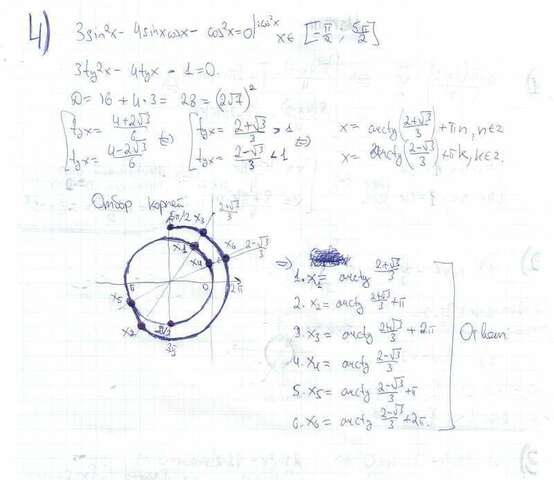 4) 3sin²x - 4sinxcosx - cos²x=0 |:cos²x x∈ [-π/2 ; 5π/2]
3tg²x - 4tgx - 1=0.
D= 16 + 4·3 = 28 = (2√7)²
[ tgx= (4+2√3)/6 ⇔ [ tgx= (2+√3)/3 > 1 ⇔ x= arctg((2+√3)/3) + πn, n∈z
[ tgx= (4-2√3)/6 [ tgx= (2-√3)/3 < 1 x= arctg((2-√3)/3) + πk, k∈z.
Отбор корней
5π/2 x₃ (2+√3)/3
x₁ x₄ x₆ (2-√3)/3
π 0 2π
x₅
x₂
⇒ 1. x₁= arctg (2+√3)/3
2. x₂= arctg (2+√3)/3 +π
3. x₃= arctg (2+√3)/3 + 2π
4. x₄= arctg (2-√3)/3
5. x₅= arctg (2-√3)/3 +π
6. x₆= arctg (2-√3)/3 +2π.
Ответ